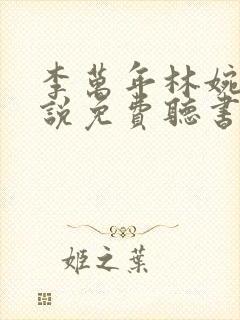 李萬年林婉
說免費聽書
姬之葉